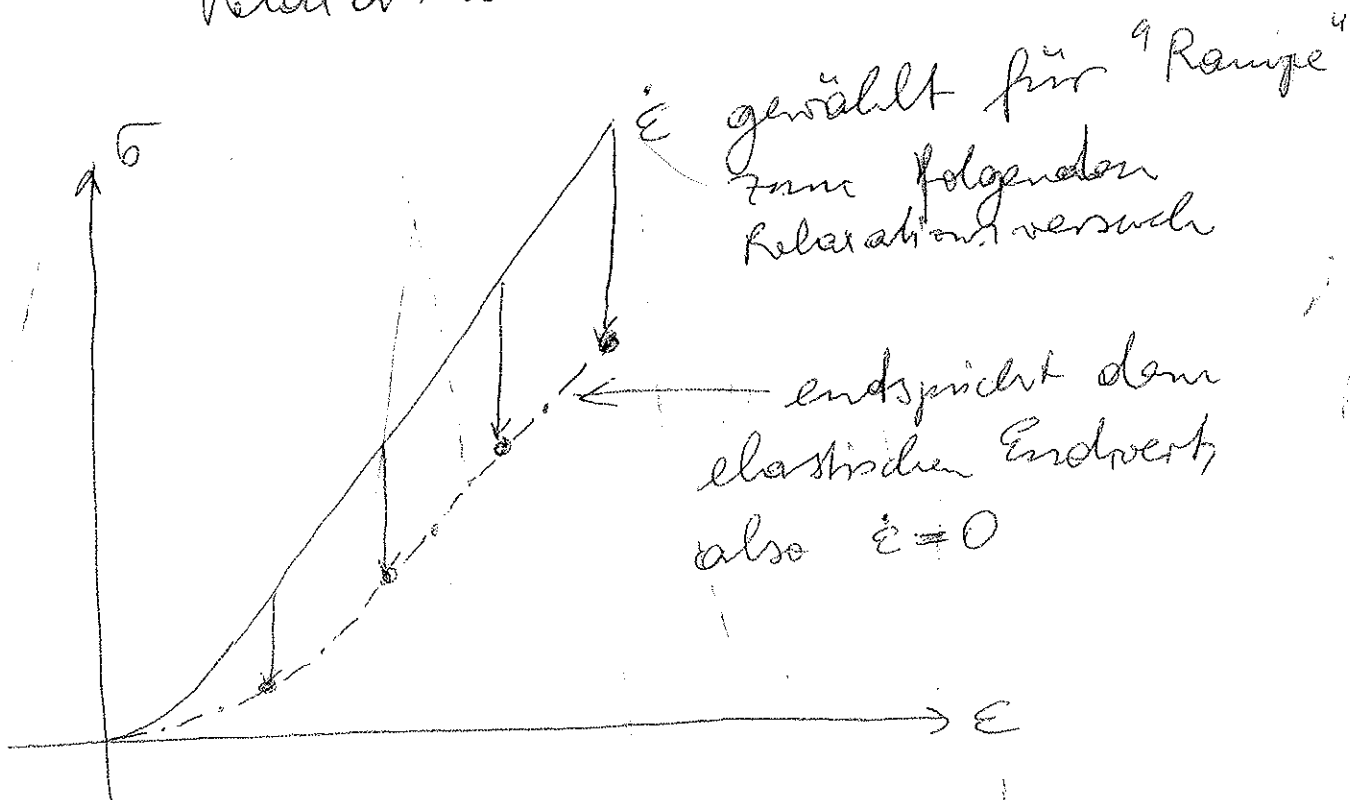 σ
ε̇ gewählt für "Rampe"
zum folgenden
Relaxationsversuch
endspricht dem
elastischen Endwert,
also ε̇ = 0
ε